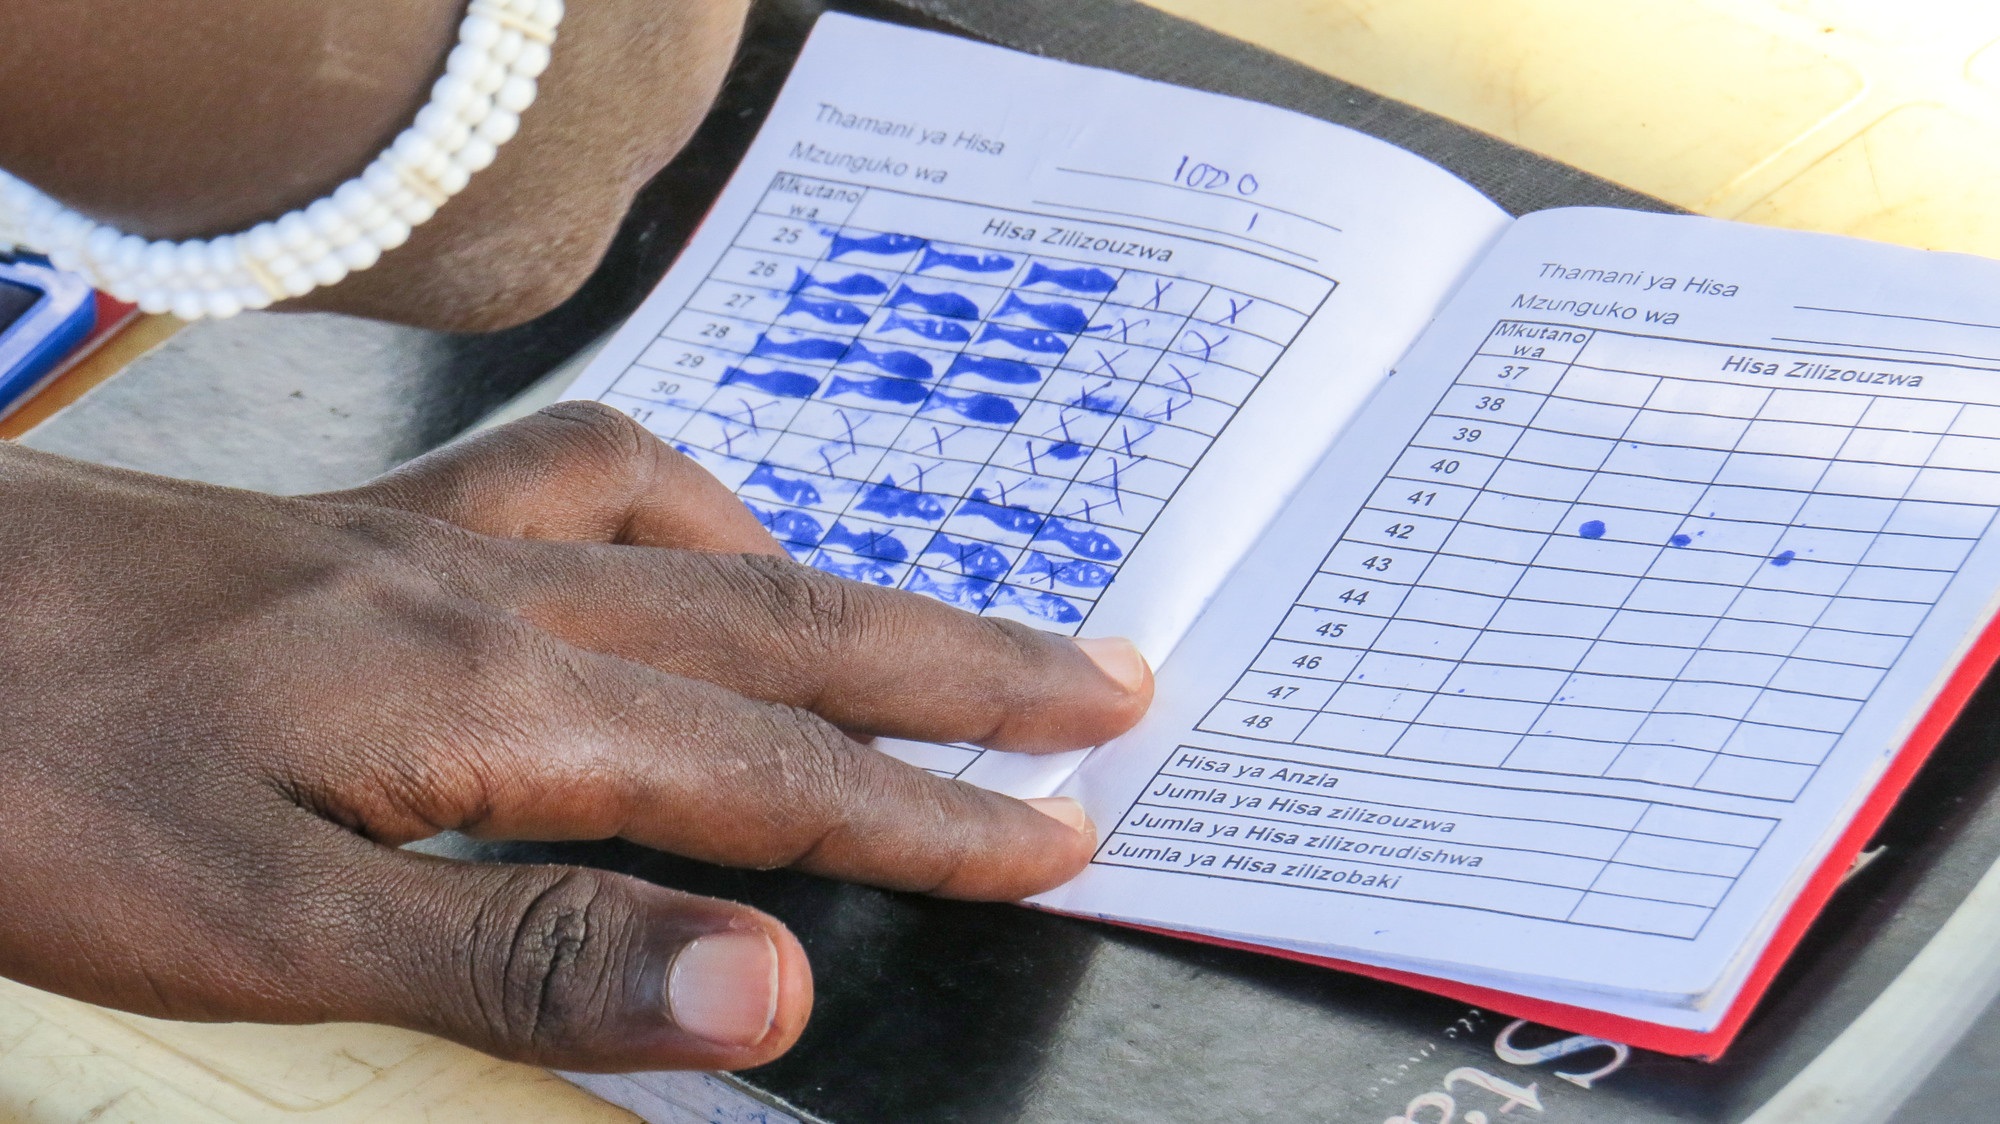 Thamani ya Hisa 1000
Mzunguko wa 1
Mkutano wa
Hisa Zilizouzwa
25
26
27
28
29
30
31
Thamani ya Hisa
Mzunguko wa
Mkutano wa
Hisa Zilizouzwa
37
38
39
40
41
42
43
44
45
46
47
48
Hisa ya Anzia
Jumla ya Hisa zilizouzwa
Jumla ya Hisa zilizorudishwa
Jumla ya Hisa zilizobaki